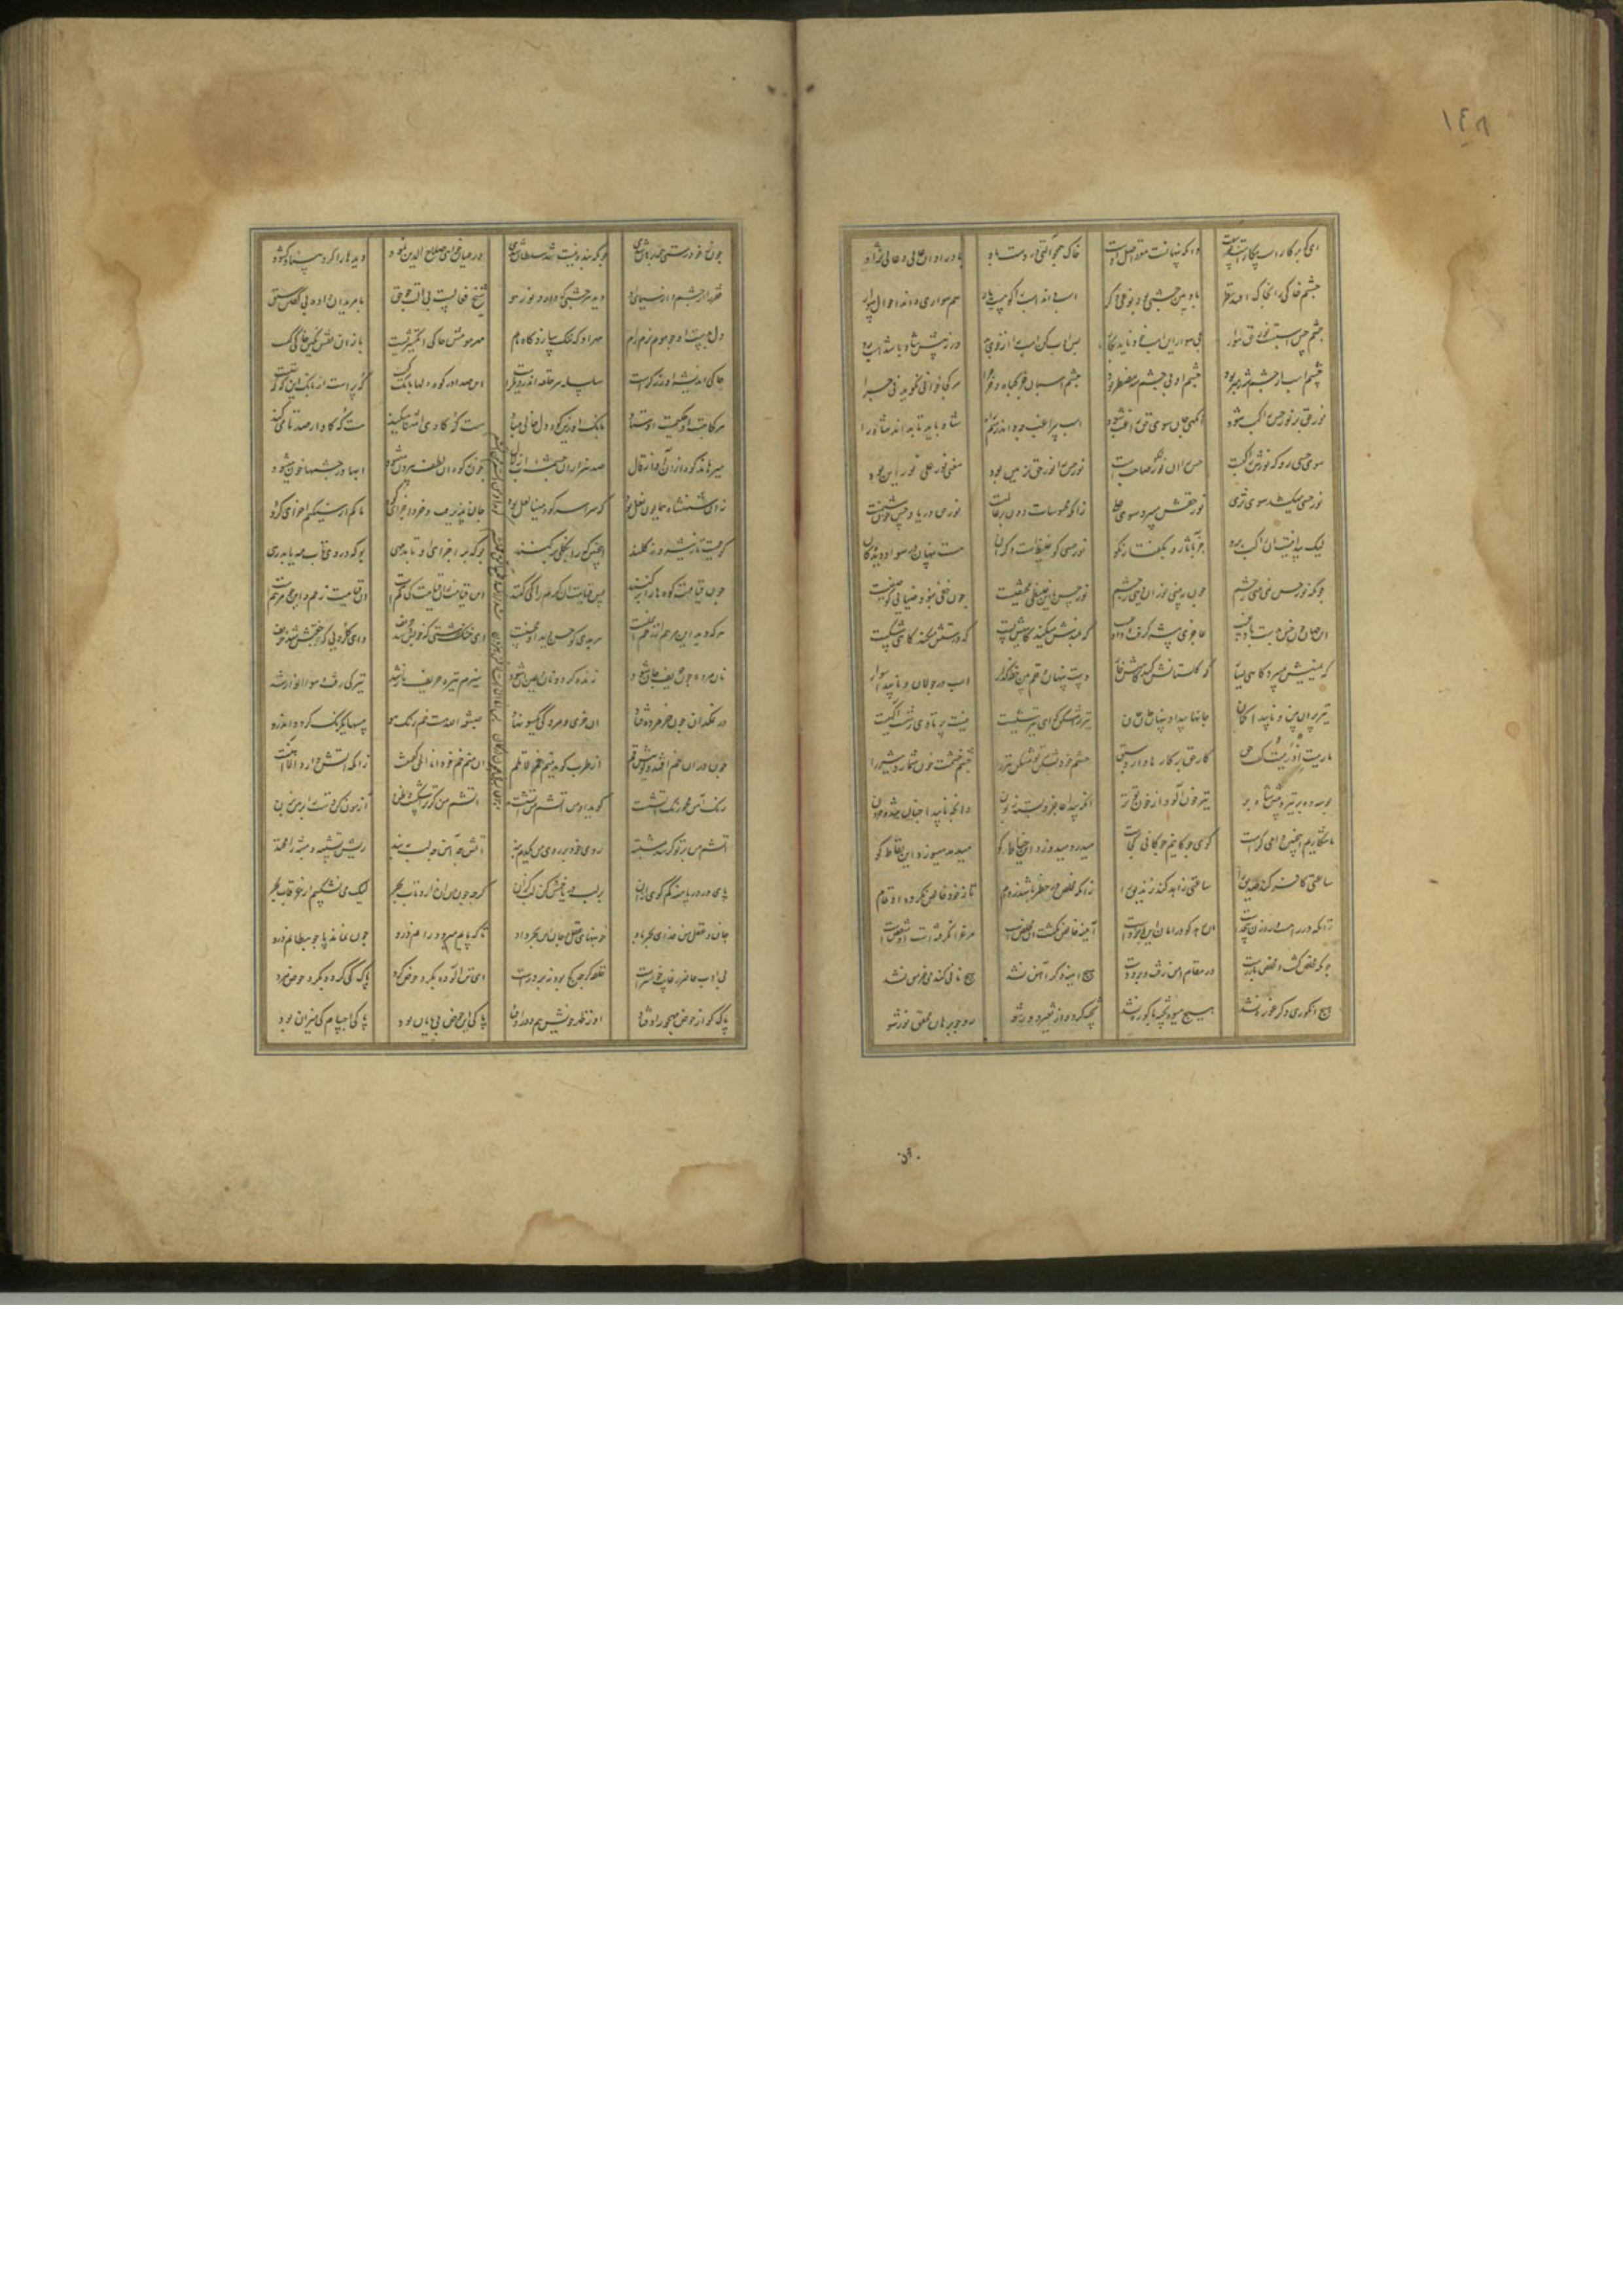 ١٤٨
این که بر کارست بیکارست و پوست وانکه پنهانست مغز و اصل اوست خاک همچون آلتی در دست باد باد را دان عالی و عالی نژاد
چشم خاکی را بخاک افتد نظر باد بین چشمی بود نوعی دگر اسب داند اسب را کو هست یار هم سواری داند احوال سوار
چشم حس اسبست و نور حق سوار بی سوار این اسب خود ناید بکار پس ادب کن اسب را از خوی بد ورنه پیش شاه باشد اسب رد
چشم اسب از چشم شه رهبر بود چشم او بی چشم شه مضطر بود چشم اسبان جز گیاه و جز چرا هر کجا خوانی بگوید نی چرا
نور حق بر نور حس راکب شود آنگهی جان سوی حق راغب شود اسب بی راکب چه داند رسم راه شاه باید تا بداند شاه راه
سوی حسی رو که نورش راکبست حس را آن نور نیکو صاحبست نور حس را نور حق تزیین بود معنی نور علی نور این بود
نور حسی میکشد سوی ثری نور حقش میبرد سوی علی زانکه محسوسات دونتر عالمیست نور حق دریا و حس چون شبنمیست
لیک پیدا نیست آن راکب برو جز بآثار و بگفتار نکو نور حسی کو غلیظست و گران هست پنهان در سواد دیدگان
چونکه نور حس نمی بینی ز چشم چون ببینی نور آن دینی ز چشم نور حس با این غلیظی مختفیست چون خفی نبود ضیائی کو صفیست
این جهان چون خس بدست باد غیب عاجزی پیشه گرفت و داد غیب گه بلندش میکند گاهیش پست گه درستش میکند گاهی شکست
گه یمینش میبرد گاهی یسار گه گلستانش کند گاهیش خار دست پنهان و قلم بین خط گذار اسب در جولان و ناپیدا سوار
تیر پران بین و ناپیدا کمان جانها پیدا و پنهان جان جان تیر را مشکن که این تیر شهیست نیست پرتاوی ز شصت آگهیست
ما رمیت اذ رمیت گفت حق کار حق بر کارها دارد سبق خشم خود بشکن تو مشکن تیر را چشم خشمت خون شمارد شیر را
بوسه ده بر تیر و پیش شاه بر تیر خون آلود از خون تو تر آنچه پیدا عاجز و بسته زبون وانچه ناپیدا چنان تند و حرون
ما شکاریم این چنین دامی کراست گوی چوگانیم چوگانی کجاست میدرد میدوزد این خیاط کو میدمد میسوزد این نفاط کو
ساعتی کافر کند صدیق را ساعتی زاهد کند زندیق را زانکه مخلص در خطر باشد مدام تا ز خود خالص نگردد او تمام
زانکه در راهست و رهزن بیحدست آن رهد کو در امان ایزدست آینه خالص نگشت او مخلص است مرغ را نگرفته است او مقنص است
چونکه مخلص گشت مخلص باز رست در مقام امن رفت و برد دست هیچ آینه دگر آهن نشد هیچ نانی گندم خرمن نشد
هیچ انگوری دگر غوره نشد هیچ میوه پخته باکوره نشد پخته گرد و از تغیر دور شو رو چو برهان محقق نور شو
چون ز خود رستی همه برهان شدی چونکه بنده نیست شد سلطان شدی ور عیان خواهی صلاح الدین نمود دیدها را کرد بینا و گشود
فقر را از چشم و از سیمای او دید هر چشمی که دارد نور هو شیخ فعالست بی آلت چو حق با مریدان داده بی گفتن سبق
دل بدست او چو موم نرم رام مهر او گه ننگ سازد گاه نام مهر مومش حاکی انگشتریست باز آن نقش نگین حاکی کیست
حاکی اندیشه آن زرگرست سلسله هر حلقه اندر دیگرست این صدا در کوه دلها بانگ کیست گه پرست از بانگ این که گه تهیست
هر کجا هست او حکیمست اوستاد بانگ او زین کوه دل خالی مباد هست که کاوا مثنا میکند هست که کاواز صدتا میکند
میزهاند کوه از آن آواز قال صد هزاران چشمه آب زلال چون ز کوه آن لطف بیرون میشود آبها در چشمها خون میشود
زان شهنشاه همایون نعل بود که سراسر کوه سینا لعل بود جان پذیرفت و خرد اجزای کوه ما کم از سنگیم آخر ای گروه
کو حمیت تا ز تیشه وز کلند این چنین که را بکلی برکنند بوکه بر اجزای او تابد مهی بوکه در وی تاب مه یابد رهی
چون قیامت کوهها را برکند پس قیامت این کرم کی میکند این قیامت زان قیامت کی کمست آن قیامت زخم و این چون مرهمست
هر که دید این مرهم از زخم ایمنست هر بدی کو حسن دید او محسنست ای خنک زشتی که خوبش شد حریف وای گلرویی که جفتش شد خریف
نان مرده چون حریف جان شود زنده گردد نان و عین آن شود هیزم تیره حریف نار شد تیرگی رفت و همه انوار شد
در نمکدان چون خر مرده فتاد آن خری و مردگی یکسو نهاد صبغة الله هست خم رنگ هو پیسها یکرنگ گردد اندرو
چون در آن خم افتد و گوییش قم از طرب گوید منم خم لا تلم آن منم خم خود انا الحق گفتنست زانکه آتش دارد الا آهنست
رنگ آهن محو رنگ آتشست گوید او من آتشم من آتشم آتشم من گر ترا شکست و ظن آزمون کن دست را بر من بزن
آتشم من بر تو گر شد مشتبه روی خود بر روی من یکدم بنه آتش چه آهن چه لب ببند ریش تشبیه و مشبه را مخند
پای در دریا منه کم گوی از آن بر لب دریا خمش کن لب گزان گرچه چون صد من ندارد تاب بحر لیک می نشکیبم از غرقاب بحر
جان و عقل من فدای بحر باد خونبهای عقل و جان این بحر داد تا که پایم میرود رانم درو چون نماند پا چو بطانم درو
بی ادب حاضر ز غایب خوشترست حلقه گرچه کژ بود نه بر درست ای تن آلوده بگرد حوض گرد پاک کی گردد برون حوض مرد
پاک کو از حوض مهجور اوفتاد او ز طهر خویش هم دور اوفتاد پاکی این حوض بی پایان بود پاکی اجسام کم میزان بود